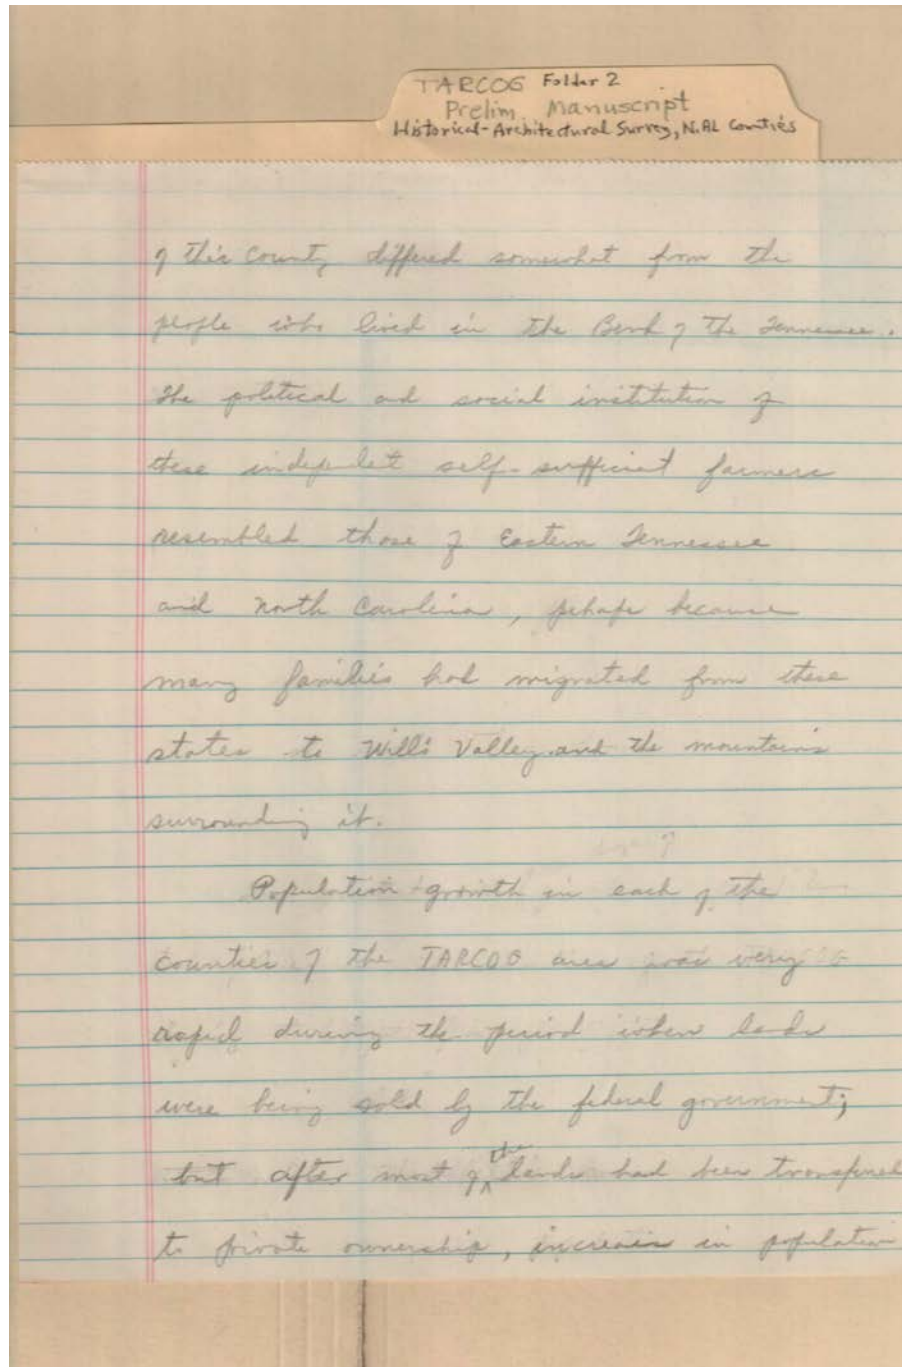 TARCOG Folder 2
Prelim Manuscript
Historical-Architectural Survey, N.AL Counties
of this County differed somewhat from the
people who lived in the Bend of the Tennessee.
The political and social institution of
these indepelet self-sufficient farmers
resembled those of Eastern Tennessee
and North Carolina, pehaps because
many families had migrated from these
states to Will's Valley and the mountains
surrounding it.
Population growth in each of the
counties of the TARCOG area was very
rapid during the period when lands
were being sold by the federal government;
but after most of the lands had been transfered
to private ownership, increases in population